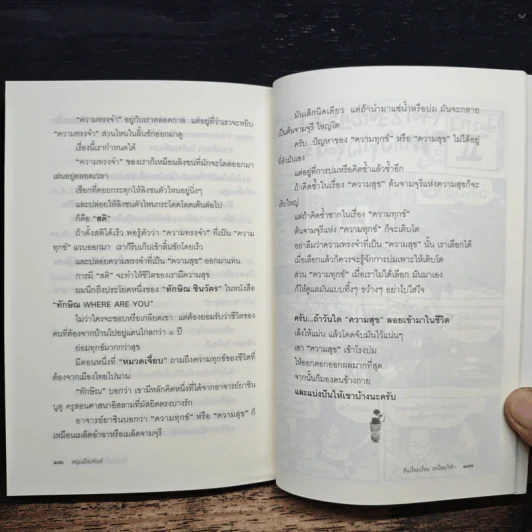 "ความทรงจำ" อยู่กับเราตลอดกาล แต่อยู่ที่ว่าเราจะหยิบ
"ความทรงจำ" ส่วนไหนในลิ้นชักออกมาดู
เรื่องนี้เรากำหนดได้
"ความทรงจำ" ของเราก็เหมือนลิงซนที่มักจะโดดออกมา
เล่นอยู่ตลอดเวลา
เชือกที่คอยกระตุกให้ลิงซนตัวไหนอยู่นิ่งๆ
และปล่อยให้ลิงซนตัวไหนกระโดดโลดเต้นต่อไป
ก็คือ "สติ"
ถ้าตั้งสติได้เร็ว พอรู้ตัวว่า "ความทรงจำ" ที่เป็น "ความ
ทุกข์" แวบออกมา เราก็รีบเก็บเข้าลิ้นชักโดยเร็ว
และปล่อยความทรงจำที่เป็น "ความสุข" ออกมาแทน
การมี "สติ" จะทำให้ชีวิตของเรามีความสุข
ผมนึกถึงประโยคหนึ่งของ "ทักษิณ ชินวัตร" ในหนังสือ
"ทักษิณ WHERE ARE YOU"
ไม่ว่าใครจะชอบหรือเกลียดเขา แต่ต้องยอมรับว่าชีวิตของ
คนที่ต้องจากบ้านไปอยู่แดนไกลกว่า ๑ ปี
ย่อมทุกข์มากกว่าสุข
มีตอนหนึ่งที่ "หมวดเจี๊ยบ" ถามถึงความทุกข์ของชีวิตที่
ต้องจากเมืองไทยไปนาน
"ทักษิณ" บอกว่า เขามีหลักคิดหนึ่งที่ได้จากอาจารย์ยาซิน
ครูสอนศาสนาอิสลามที่มัสยิดตรงบางรัก
อาจารย์ยาซินบอกว่า "ความทุกข์" หรือ "ความสุข" ก็
เหมือนเมล็ดอ้าอาหรือเมล็ดจามจุรี
หนุ่มเมืองจันท์
มันเล็กนิดเดียว แต่ถ้านำมาแช่น้ำหรือบ่ม มันจะกลาย
เป็นต้นจามจุรี ใหญ่โต
ครับ...ปัญหาของ "ความทุกข์" หรือ "ความสุข" ไม่ได้อยู่
ที่ตัวมันเอง
แต่อยู่ที่การบ่มหรือคิดซ้ำแล้วซ้ำอีก
ถ้าคิดซ้ำในเรื่อง "ความสุข" ต้นจามจุรีแห่งความสุขก็จะ
เติบใหญ่
แต่ถ้าคิดซ้ำซากในเรื่อง "ความทุกข์"
ต้นจามจุรีแห่ง "ความทุกข์" ก็จะเติบโต
อย่าลืมว่าความทรงจำที่เป็น "ความสุข" นั้น เราเลือกได้
เมื่อเลือกแล้วก็ควรจะรู้จักการบ่มเพาะให้เติบโต
ส่วน "ความทุกข์" เมื่อเราไม่ได้เลือก มันมาเอง
ก็ให้ดูแลมันแบบทิ้งๆ ขว้างๆ อย่าไปใส่ใจ
ครับ...ถ้าวันใด "ความสุข" ลอยเข้ามาในชีวิต
เล็งให้แม่น แล้วโดดจับมันไว้แน่นๆ
เอา "ความสุข" เข้าโรงบ่ม
ให้ออกดอกออกผลมากที่สุด
จากนั้นก็มองคนข้างกาย
และแบ่งปันให้เขาบ้างนะครับ